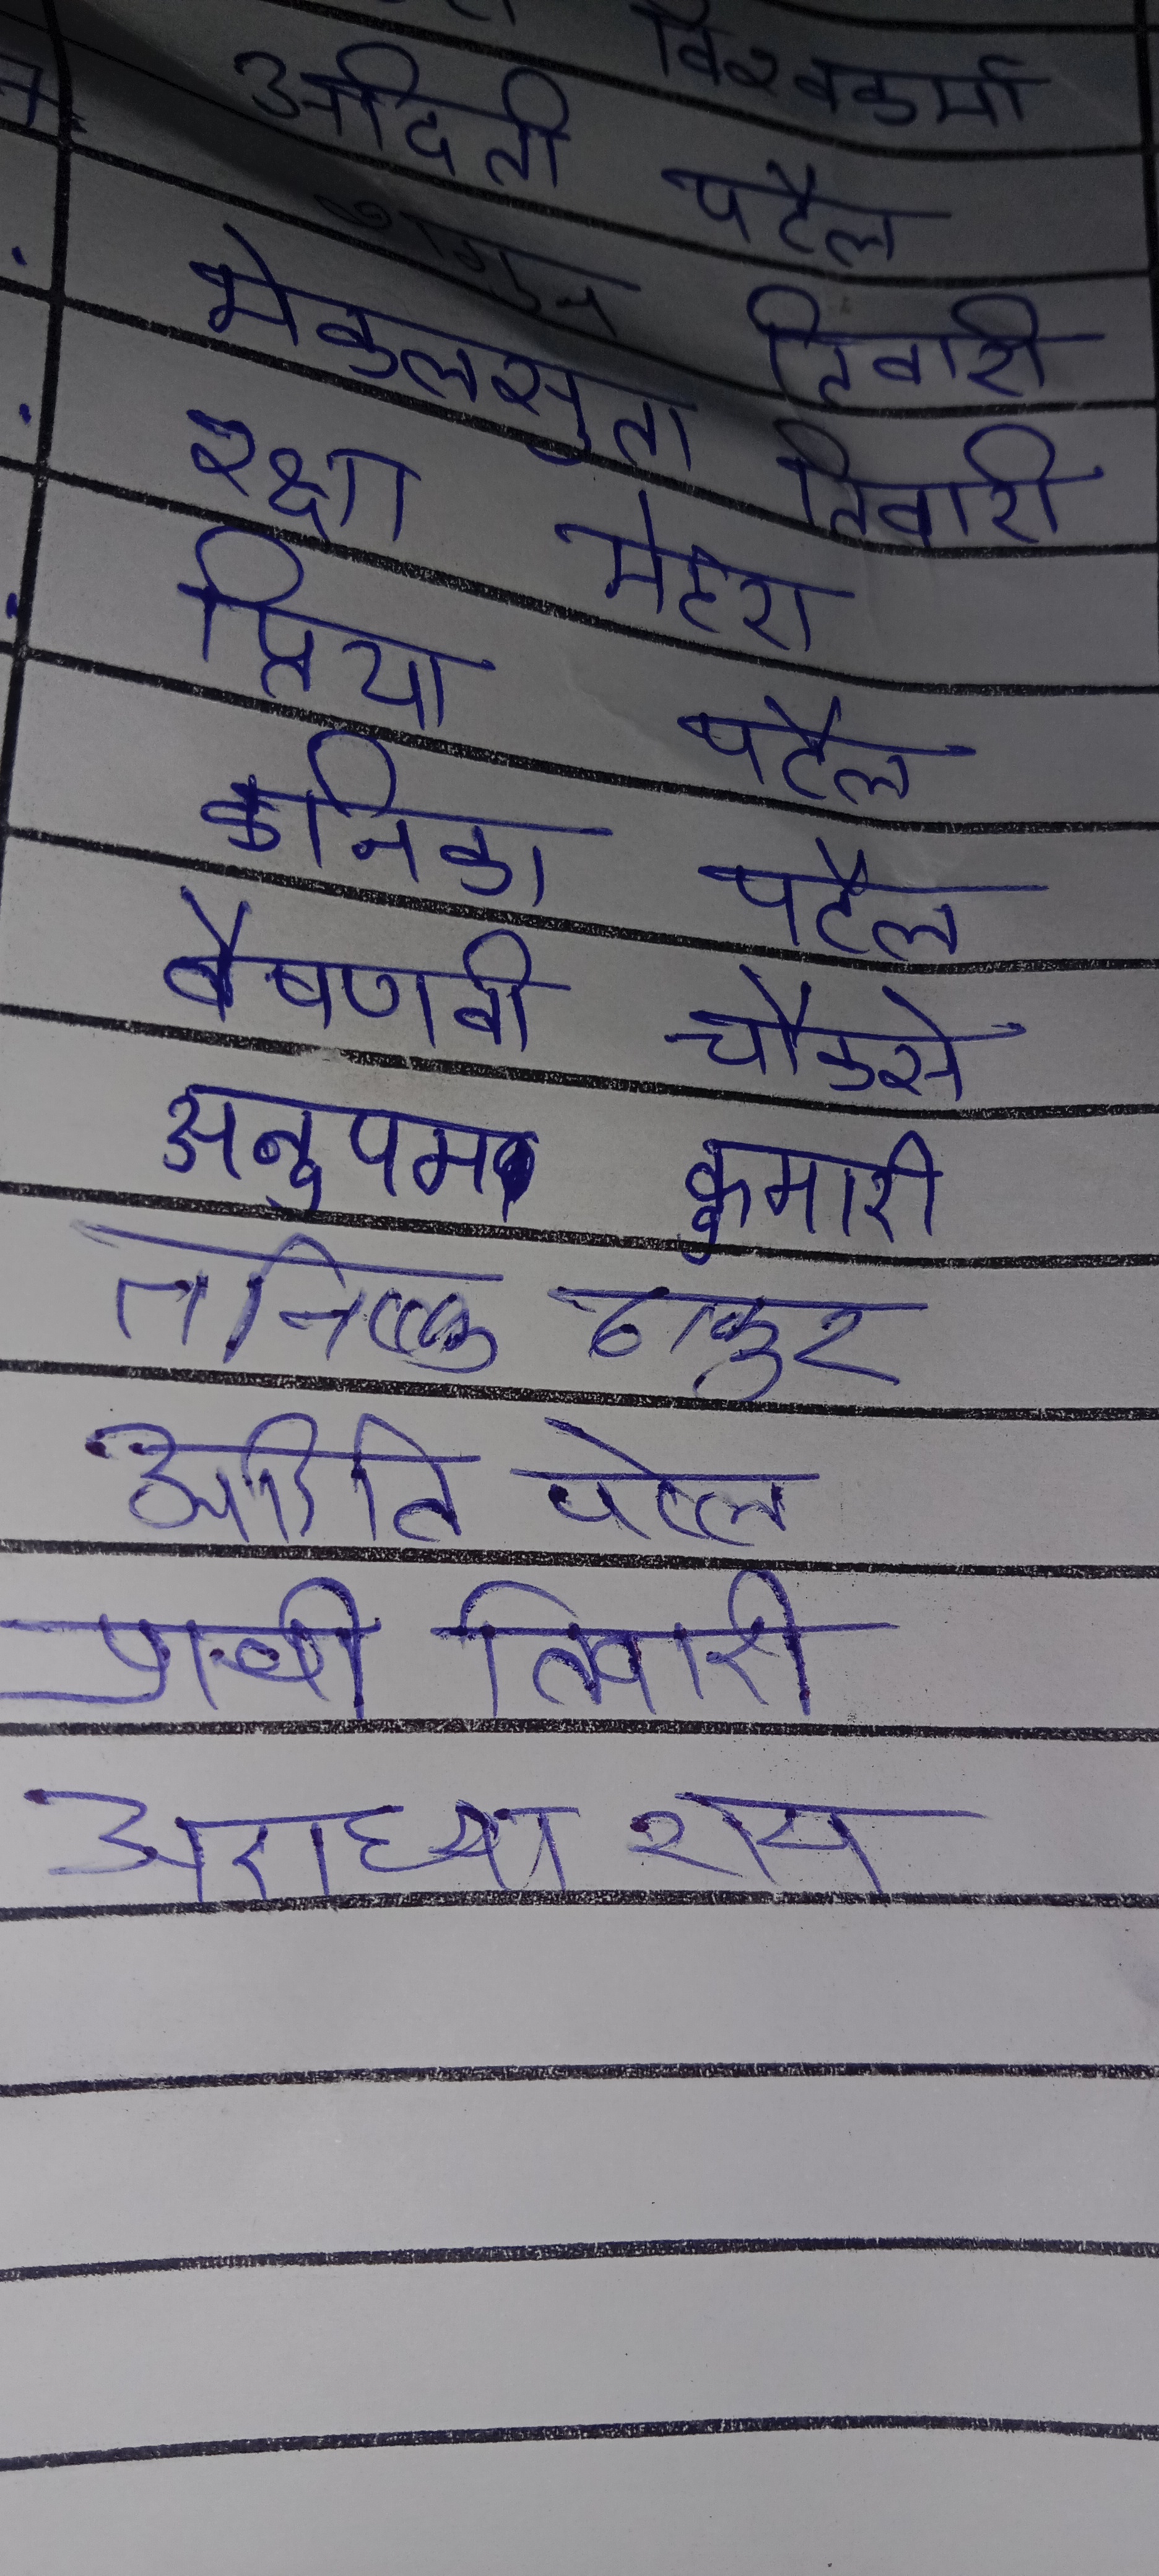 विश्वकर्मा
अदिती पटैल
तिवारी
मेकुलसुता तिवारी
रक्षा मेहरा
प्रिया पटैल
कनिका पटैल
वैषणवी चौकसे
अनुपमा कुमारी
तनिष्क ठाकुर
अदिति पटेल
प्राची तिवारी
अराध्या राय